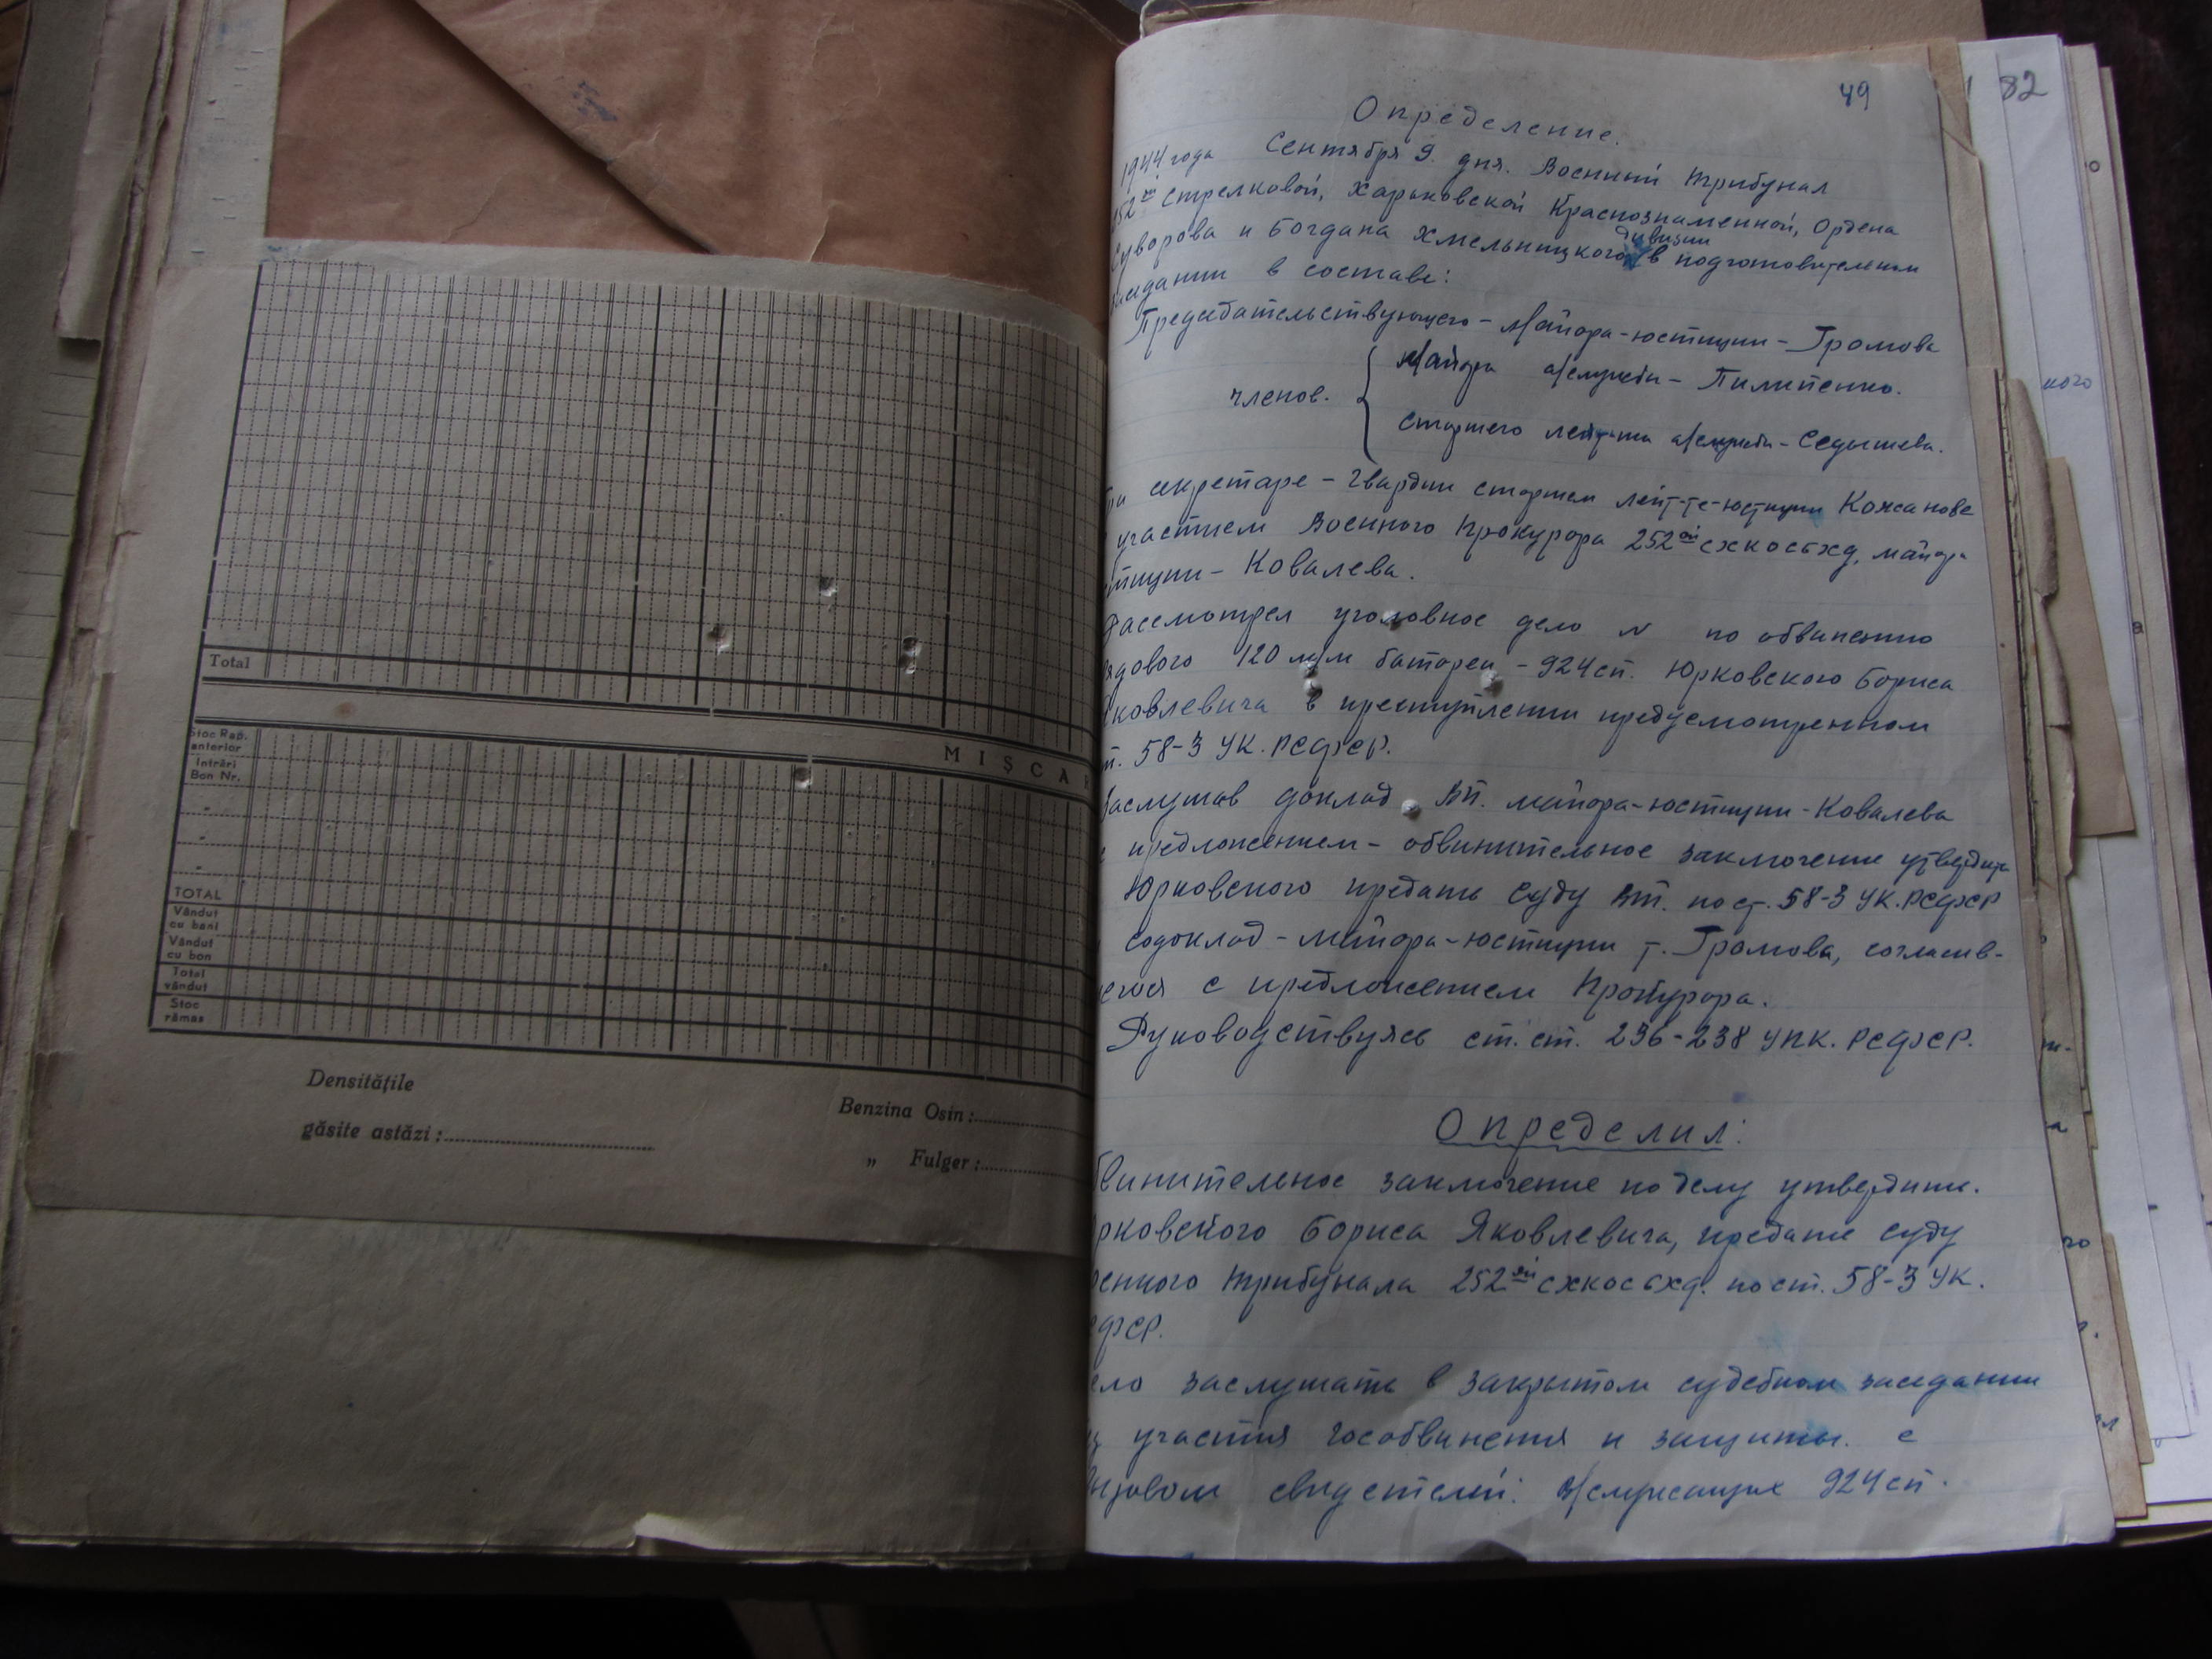 Total
MIŞCA
Stoc Rap.
anterior
Intrări
Bon Nr.
"
"
"
TOTAL
Vândut
cu bani
Vândut
cu bon
Total
vândut
Stoc
rămas
Densităţile
găsite astăzi :
Benzina Osin :
" Fulger :
49
82
Определение.
1944 года Сентября 9 дня. Военный трибунал
252ой стрелковой, Харьковской Краснознаменной, Ордена
Суворова и Богдана Хмельницкого дивизии в подготовительном
заседании в составе:
Председательствующего - Майора-юстиции - Громова
членов. Майора а/службы - Пилипенко.
Старшего лейт-та а/службы - Седышева.
При секретаре - гвардии старшем лейт-те-юстиции
участием Военного Прокурора 252ой схкосбхд, майора
юстиции - Ковалева.
Рассмотрел уголовное дело N по обвинению
рядового 120 м/м батареи - 924 сп. Юрковского Бориса
Яковлевича в преступлении предусмотренном
ст. 58-3 УК. РСФСР.
Заслушав доклад ВП. майора-юстиции - Ковалева
с предложением - обвинительное заключение утвердить
Юрковского предать суду ВТ. по ст. 58-3 УК. РСФСР
содоклад - майора-юстиции т. Громова, согласив-
шегося с предложением Прокурора.
Руководствуясь ст. ст. 236-238 УПК. РСФСР.
Определил:
Обвинительное заключение по делу утвердить.
Юрковского Бориса Яковлевича, предать суду
Военного трибунала 252ой схкосбхд. по ст. 58-3 УК.
РСФСР.
Дело заслушать в закрытом судебном заседании
без участия гособвинения и защиты. с
вызовом свидетелей: в/служащих 924 сп.